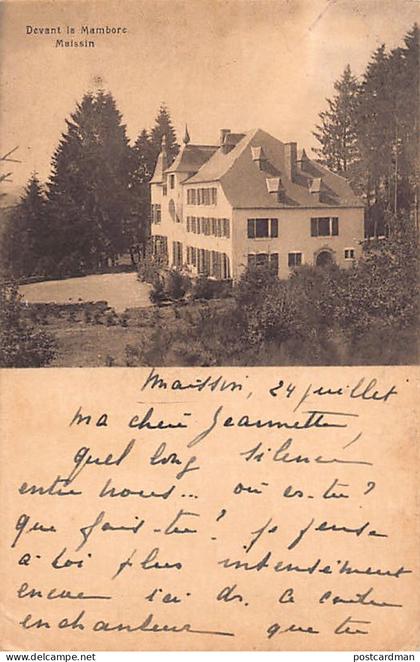 Devant la Mambore
Maissin
Maissin, 24 juillet
Ma chère Jeannette,
Quel long silence
entre nous... où es-tu ?
que fais-tu ? je pense
à toi plus intensément
encore ici ds. ce cadre
enchanteur que tu
postcardman
© postcardman.com